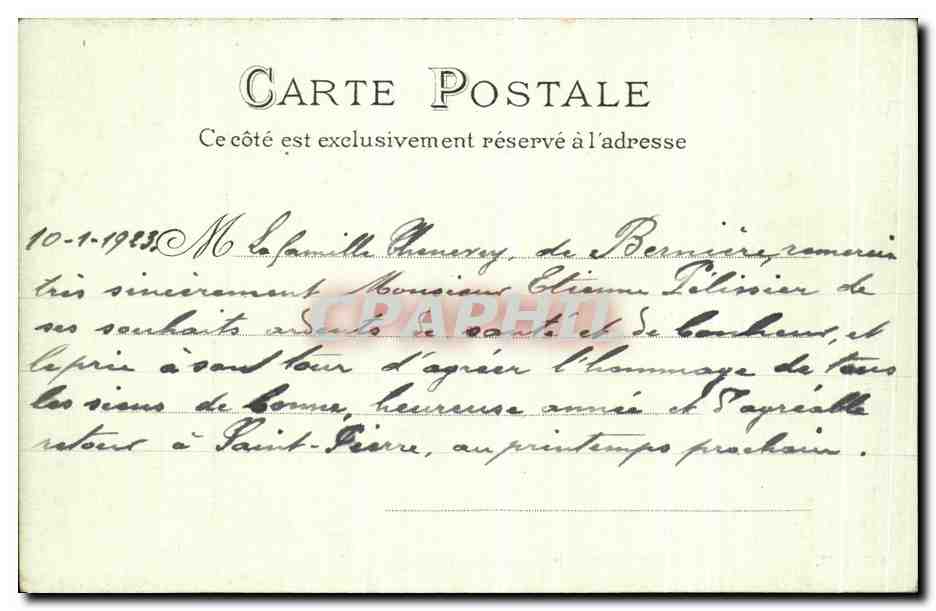 CARTE POSTALE
Ce côté est exclusivement réservé à l'adresse
10-1-1923. M La famille Thenevey, de Bernière, remercie
très sincèrement Monsieur Etienne Pélissier de
ses souhaits ardents de santé et de bonheur, et
le prie à son tour d'agréer l'hommage de tous
les siens de bonne, heureuse année et d'agréable
retour à Saint-Pierre, au printemps prochain.
CPAPHIL